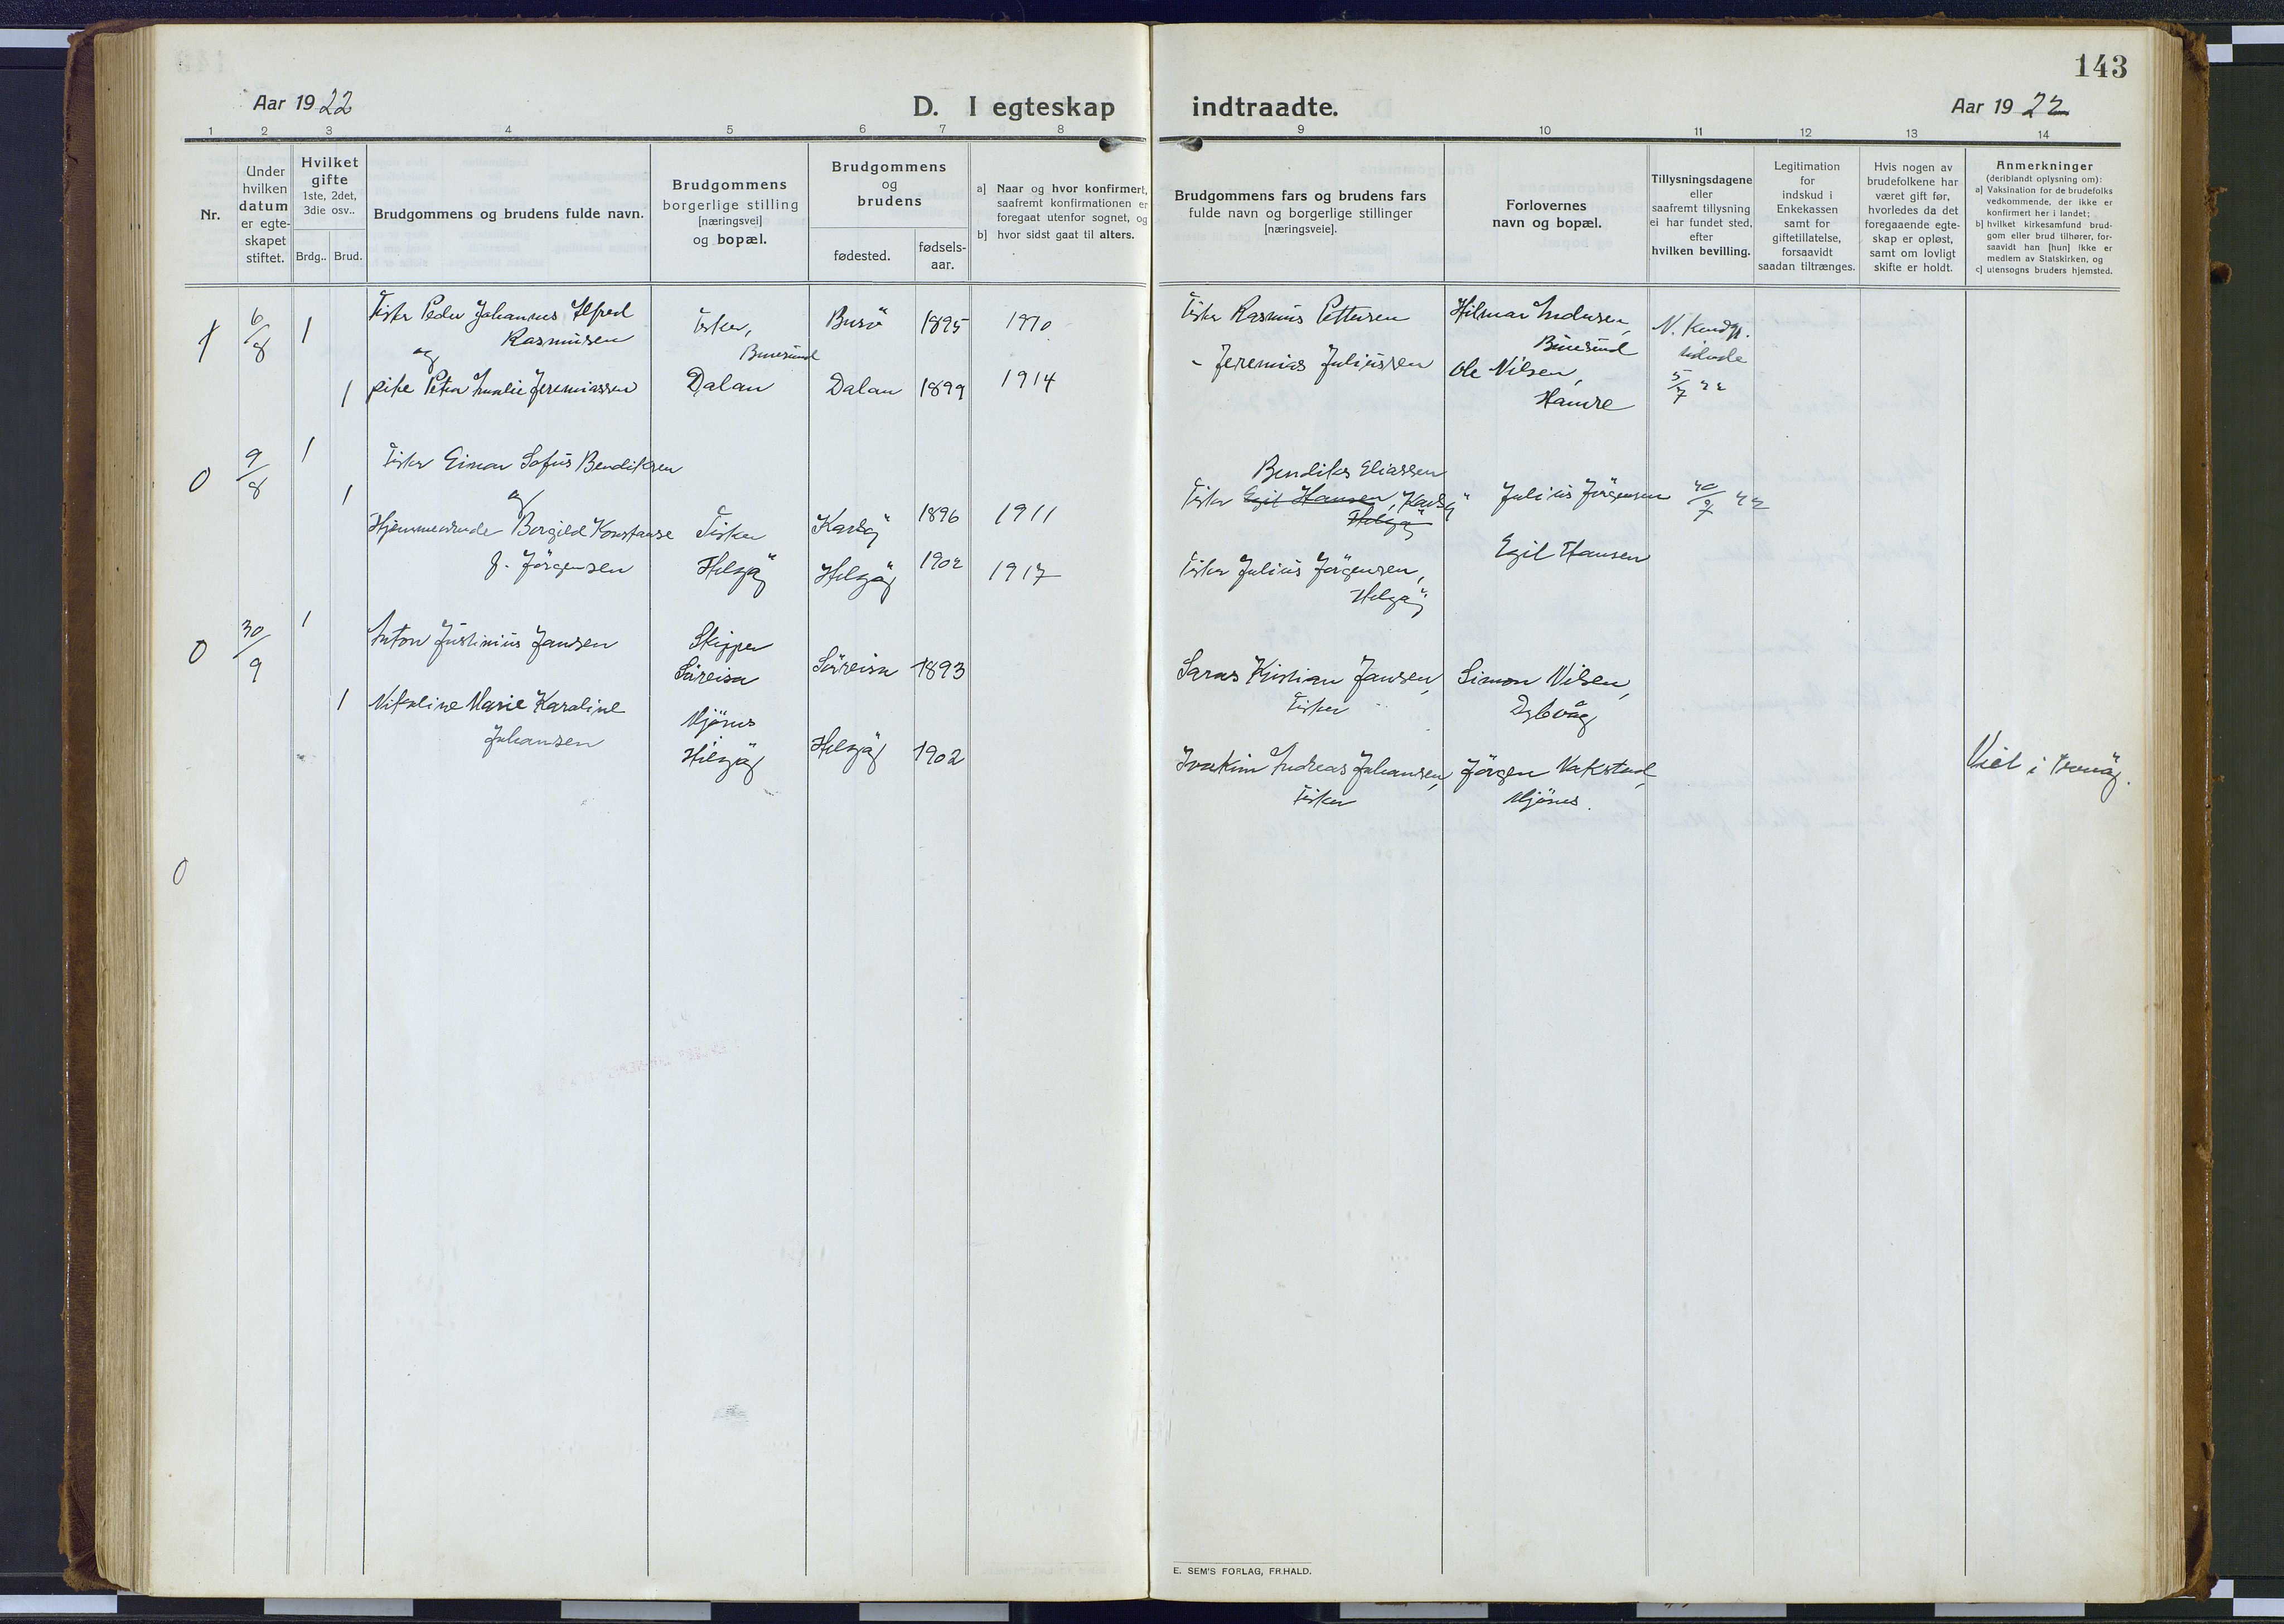 143
Aar 1922
D. I egteskap
indtraadte.
Aar 1922
1 2 3 4 5 6 7 8 9 10 11 12 13 14
Nr.
Under
hvilken
datum
er egte-
skapet
stiftet.
Hvilket
gifte
1ste, 2det,
3die osv..
Brdg.. Brud.
Brudgommens og brudens fulde navn.
Brudgommens
borgerlige stilling
[næringsvei]
og bopæl.
Brudgommens
og
brudens
fødested.
fødsels-
aar.
a] Naar og hvor konfirmert,
saafremt konfirmationen er
foregaat utenfor sognet, og
b] hvor sidst gaat til alters.
Brudgommens fars og brudens fars
fulde navn og borgerlige stillinger
[næringsveie].
Forlovernes
navn og bopæl.
Tillysningsdagene
eller
saafremt tillysning
ei har fundet sted,
efter
hvilken bevilling.
Legitimation
for
indskud i
Enkekassen
samt for
giftetillatelse,
forsaavidt
saadan tiltrænges.
Hvis nogen av
brudefolkene har
været gift før,
hvorledes da det
foregaaende egte-
skap er opløst,
samt om lovligt
skifte er holdt.
Anmerkninger
(deriblandt oplysning om):
a] Vaksination for de brudefolks
vedkommende, der ikke er
konfirmert her i landet;
b] hvilket kirkesamfund brud-
gom eller brud tilhører, for-
saavidt han [hun] ikke er
medlem av Statskirken, og
c] utensogns bruders hjemsted.
1 6/8 1 Fisker Peder Johannes Alfred
Rasmussen
og
1 pike Petra Amalie Jeremiassen
Fisker,
Buvesund
Dalan
1895 1910
Dalan 1899 1914
Fisker Rasmus Pettersen
- Jeremias Juliussen
Hilmar Andersen,
Ole Nilsen,
Hamre
5/7 22
0 9/8 1 Fisker Einar Sofus Bendiksen
1 og
Borgild Konstanse
J. Jørgensen
Fisker
Helgøy
Karlsøy 1896 1911
Helgøy 1902 1917
Bendiks Eliassen
Fisker Egil Hansen, Karlsøy
Helgøy
Fisker Julius Jørgensen,
Helgøy
Julius Jørgensen
Egil Hansen
0 30/9 1 Anton Justinius Jansen
1 Nikoline Marie Karoline
Johansen
Skipper
Sørreisa
Mjønes
Helgøy
Sørreisa 1893
Helgøy 1902
Kristian Jansen,
Fisker
Joakim Andreas Johansen,
Fisker
Simon Nilsen,
Dybvåg
Jørgen Vakstad,
Mjønes.
Viet i
0
E. SEM'S FORLAG, FR.HALD.